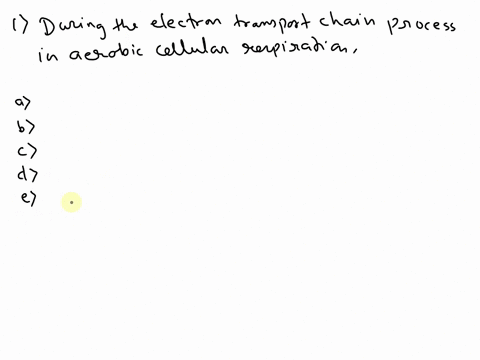 1) During the electron transport chain process
in aerobic cellular respiration,
a)
b)
c)
d)
e)